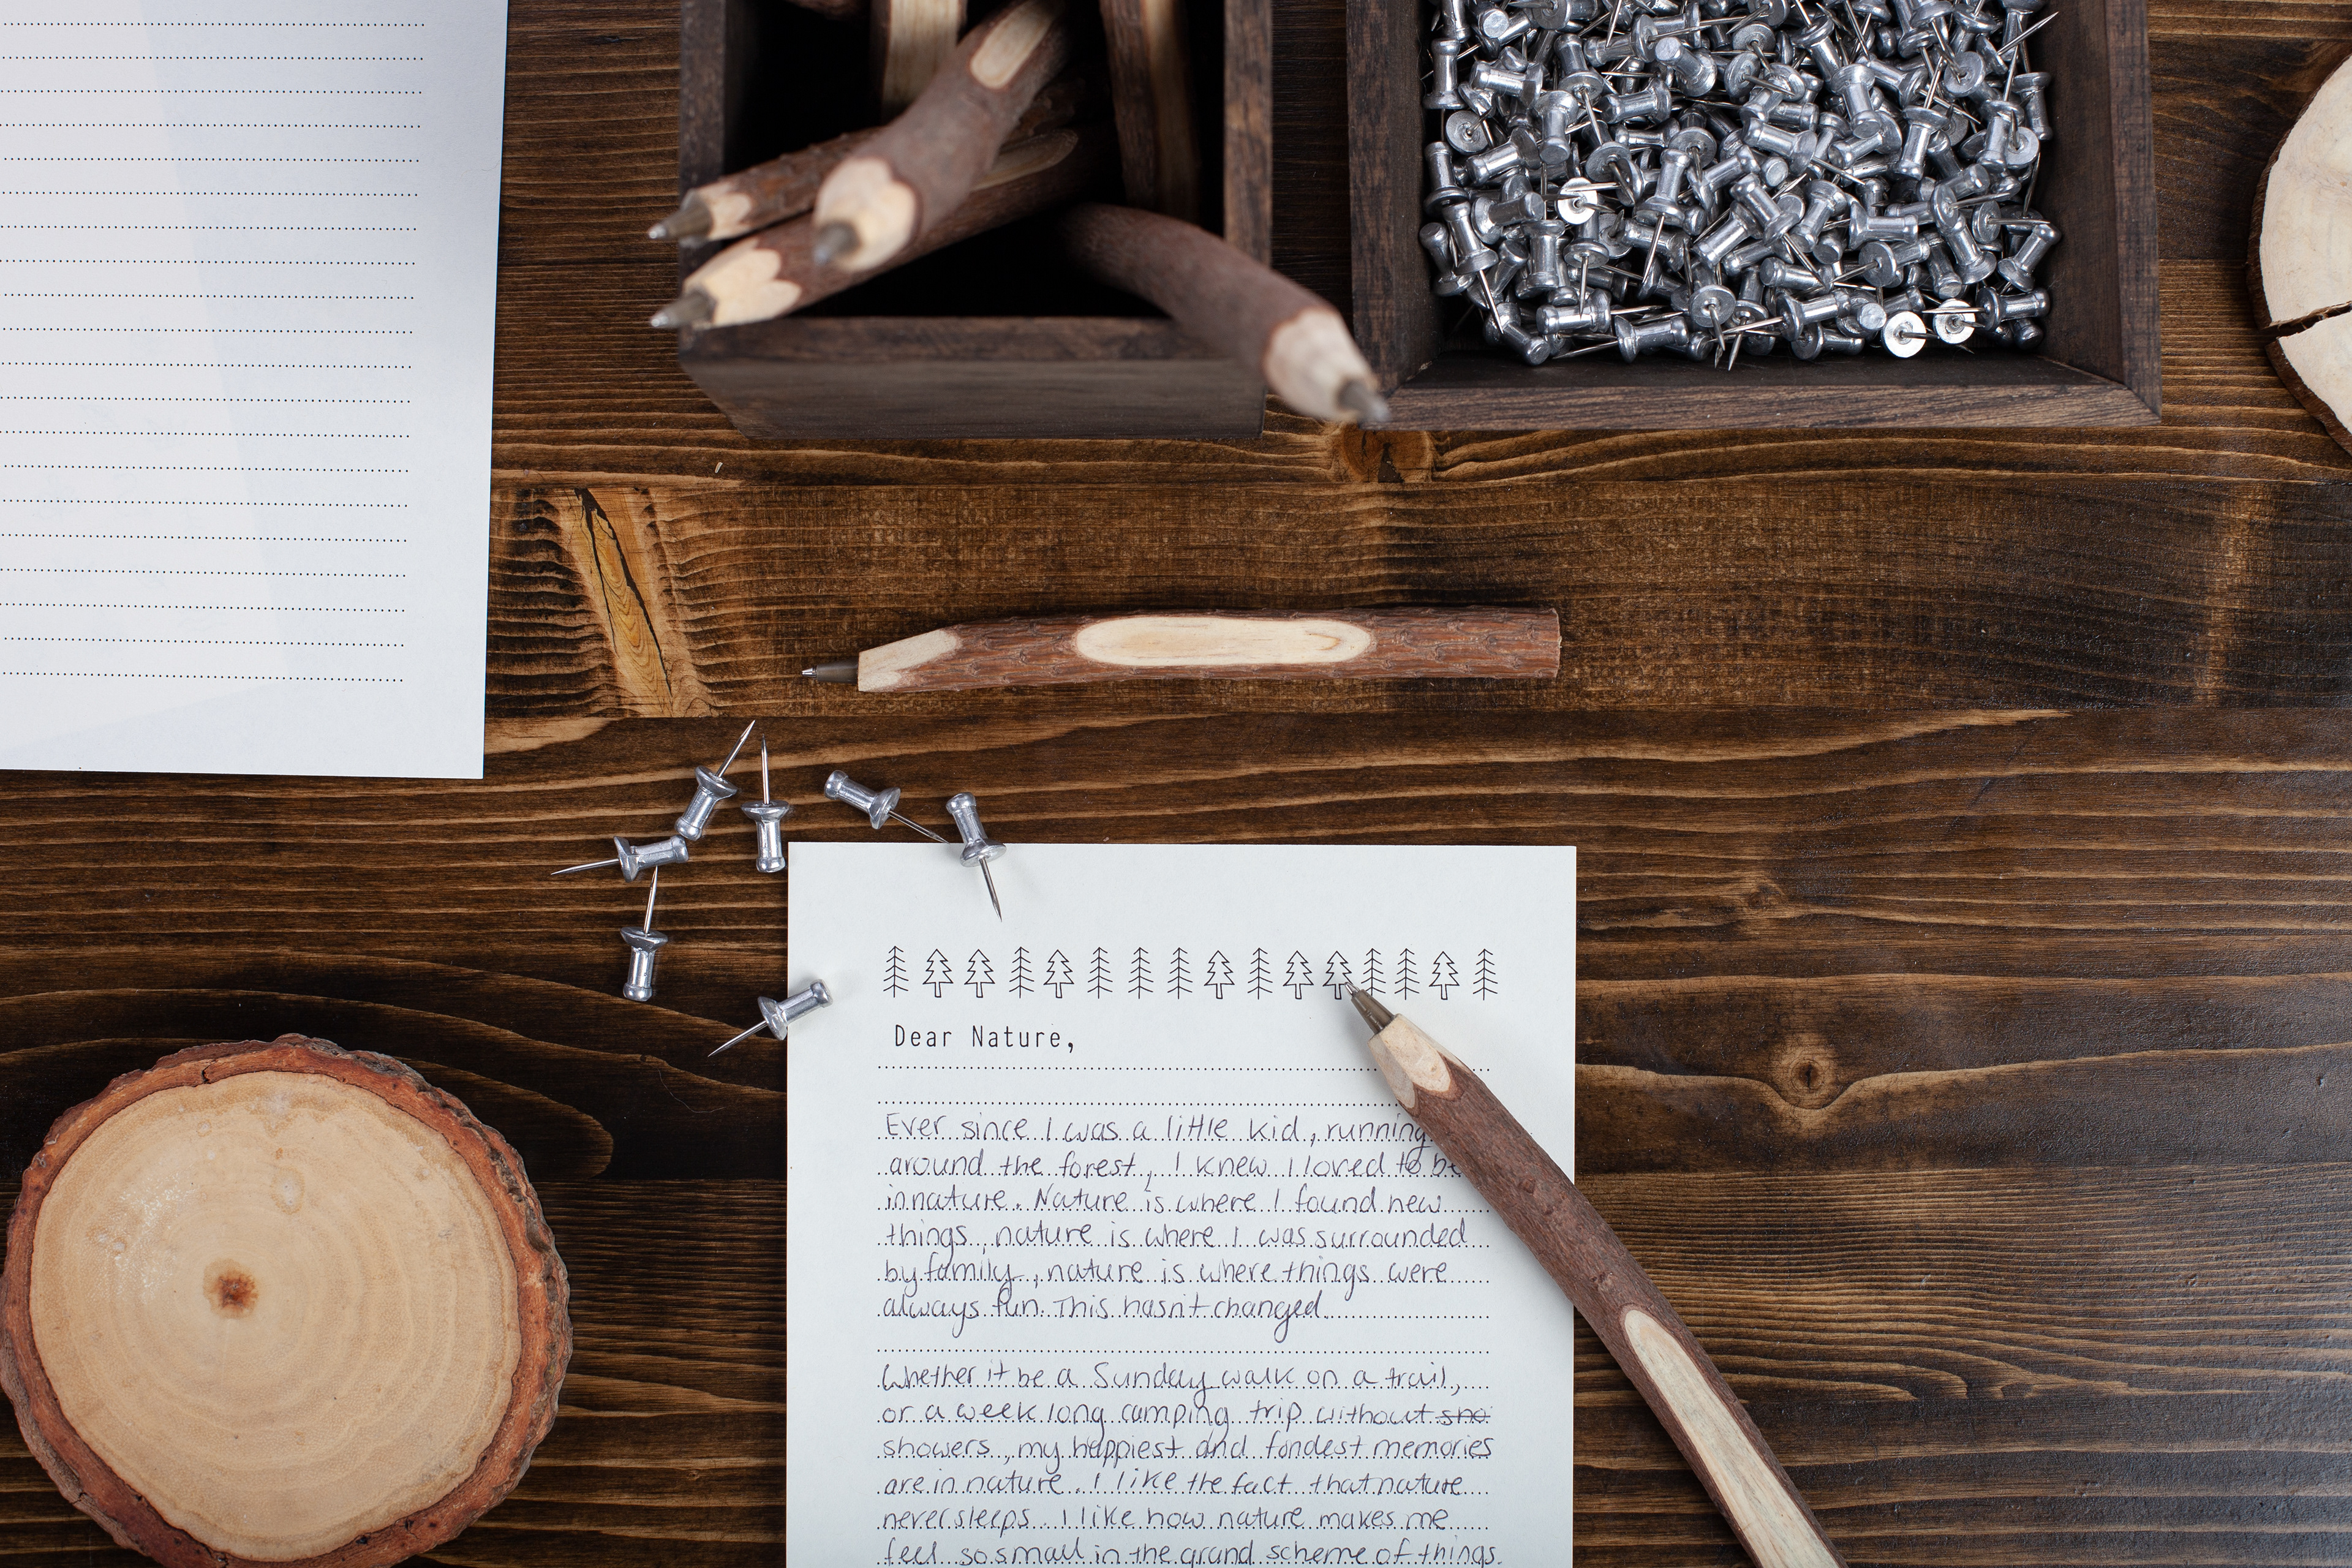 Dear Nature,
Ever since I was a little kid, running
around the forest, I knew I loved to be
in nature. Nature is where I found new
things, nature is where I was surrounded
by family, nature is where things were
always fun. This hasn't changed.
Whether it be a Sunday walk on a trail,
or a week long camping trip without sho
showers, my happiest and fondest memories
are in nature. I like the fact that nature
never sleeps. I like how nature makes me
feel so small in the grand scheme of things.